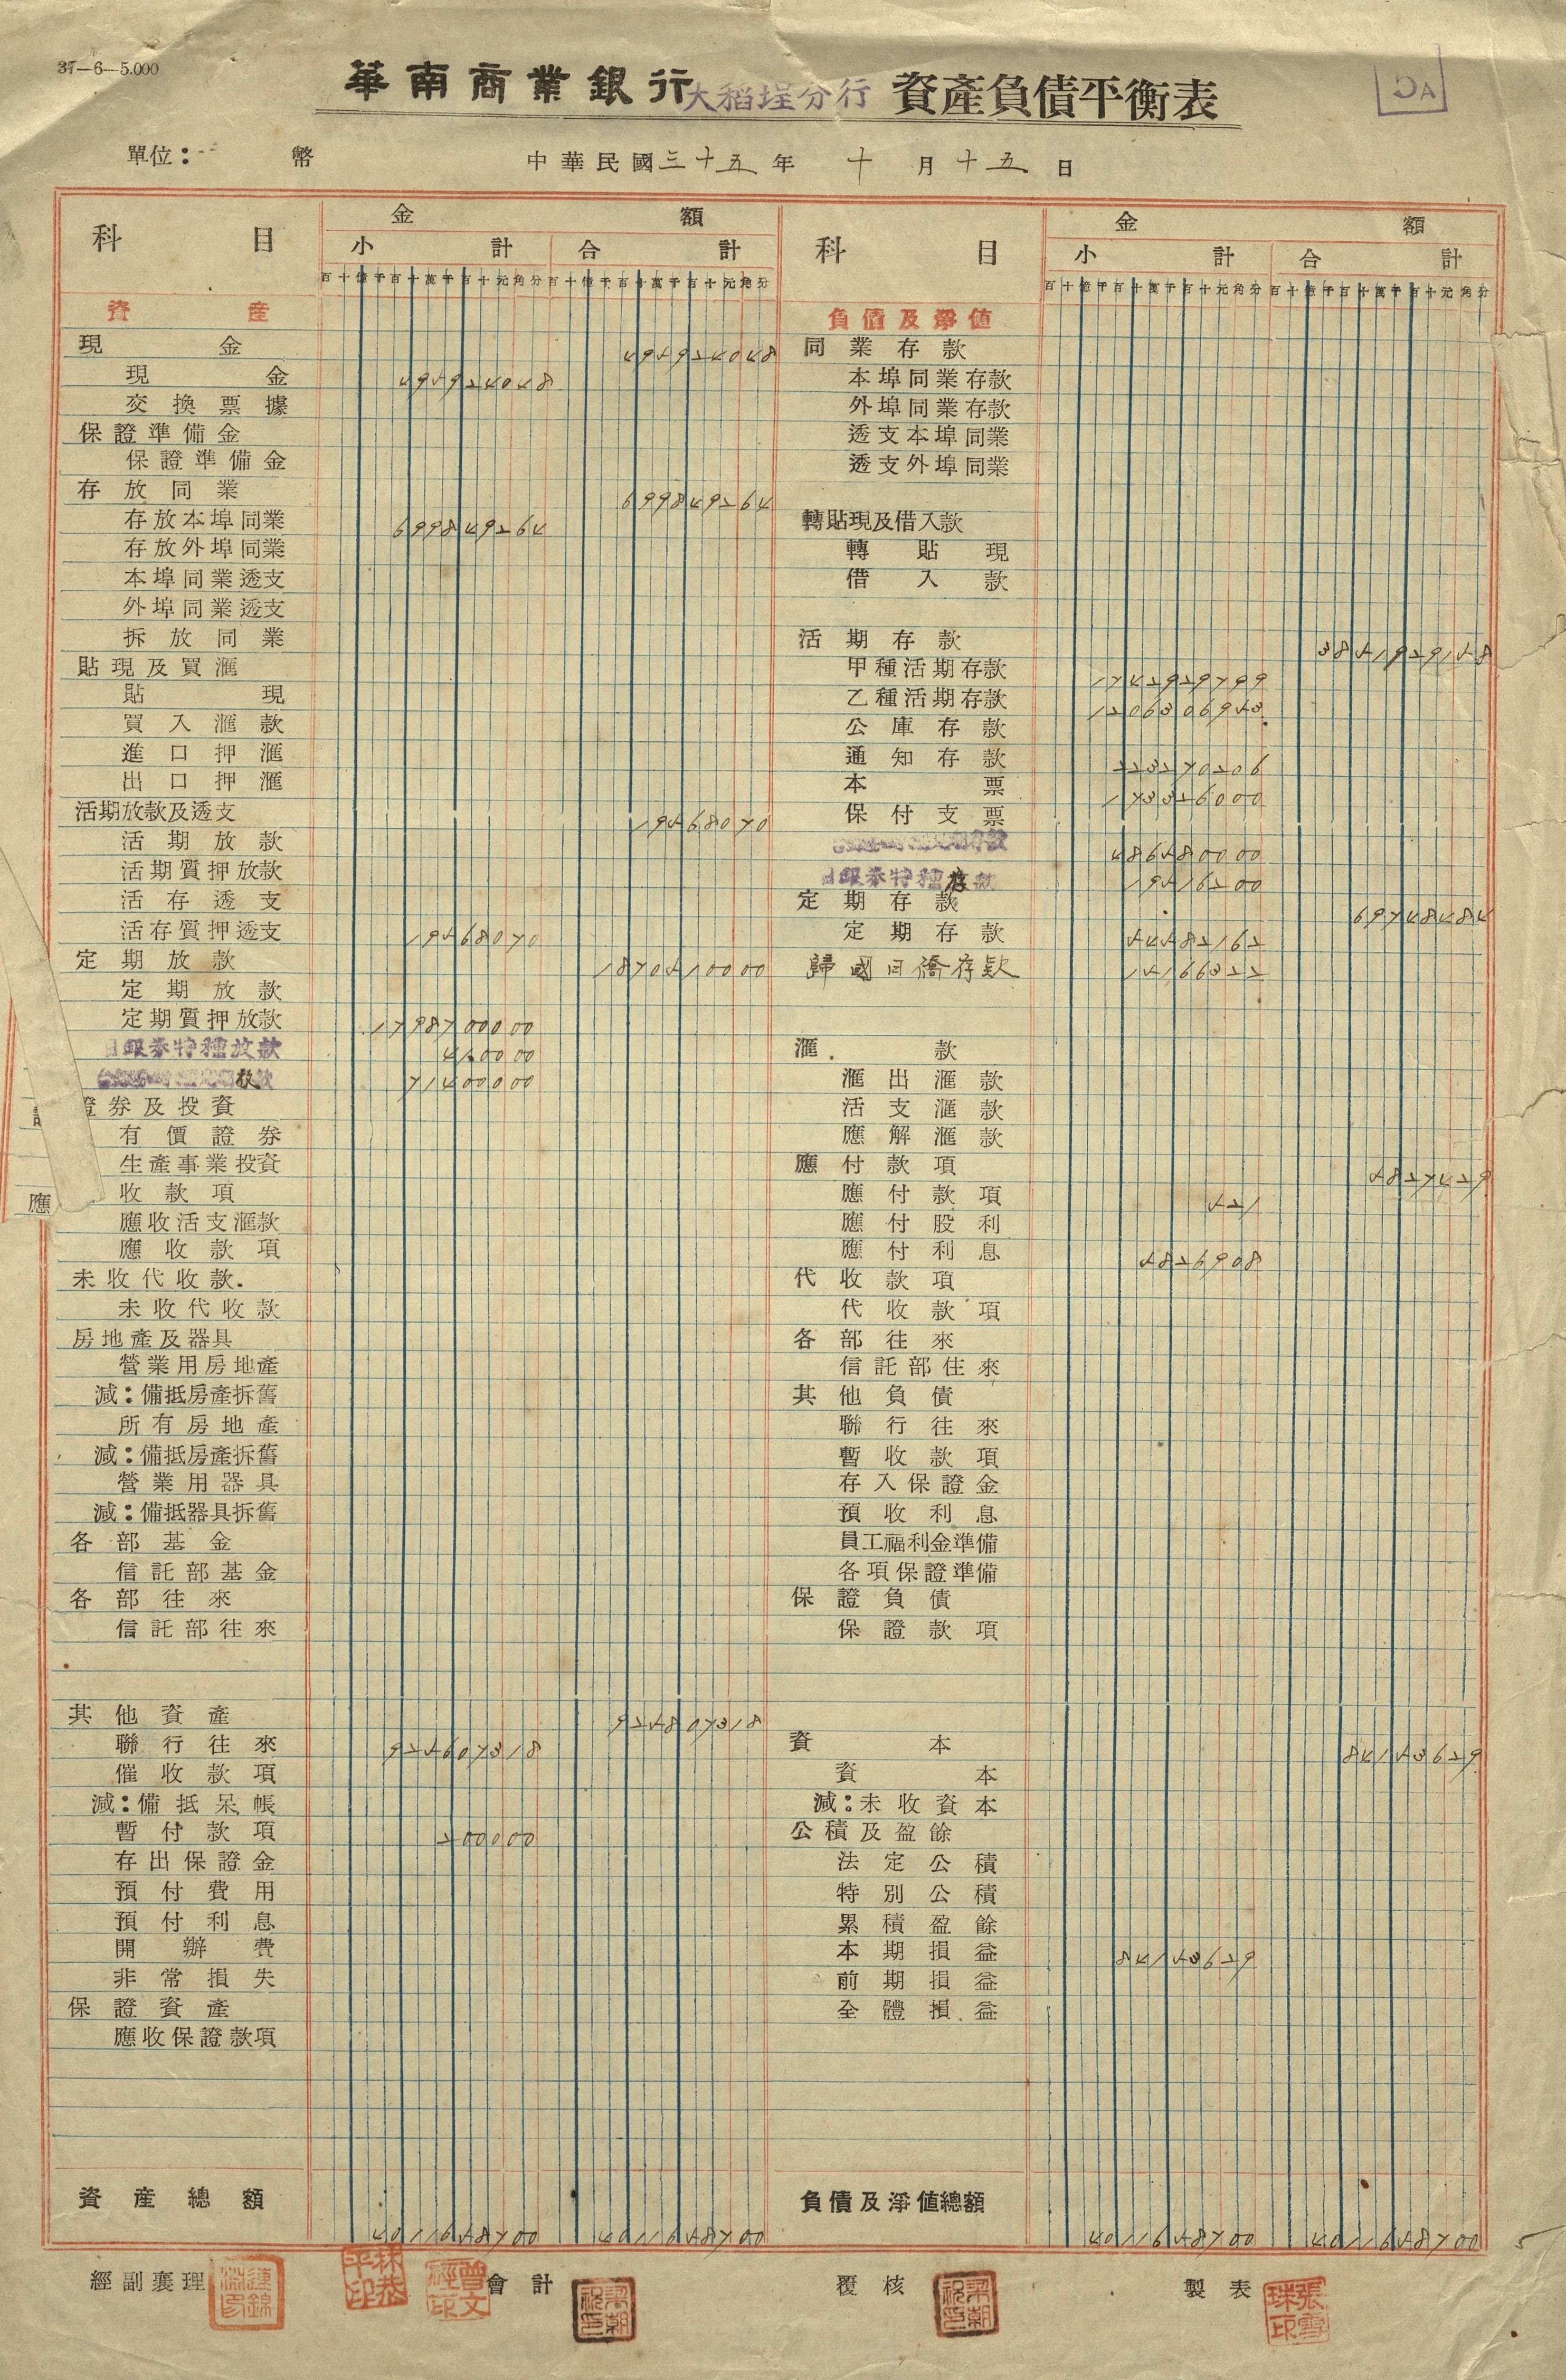 37—6—5.000
華南商業銀行大稻埕分行 資產負債平衡表
5A
單位： 幣
中華民國三十五年 十月十五日
科目 金額
小計 合計
百十億千百十萬千百十元角分 百十億千百十萬千百十元角分
資產
現金 495924048
現金 495924048
交換票據
保證準備金
保證準備金
存放同業 699849264
存放本埠同業 699849264
存放外埠同業
本埠同業透支
外埠同業透支
拆放同業
貼現及買滙
貼現
買入滙款
進口押滙
出口押滙
活期放款及透支 19568070
活期放款
活期質押放款
活存透支
活存質押透支 19568070
定期放款 1870510000
定期放款
定期質押放款 1798700000
日銀券特種放款 410000
放款 71400000
證券及投資
有價證券
生產事業投資
應收款項
應收活支滙款
應收款項
未收代收款
未收代收款
房地產及器具
營業用房地產
減：備抵房產拆舊
所有房地產
減：備抵房產拆舊
營業用器具
減：備抵器具拆舊
各部基金
信託部基金
各部往來
信託部往來
其他資產 925807318
聯行往來 925607318
催收款項
減：備抵呆帳
暫付款項 200000
存出保證金
預付費用
預付利息
開辦費
非常損失
保證資產
應收保證款項
資產總額 4011658700 4011658700
科目 金額
小計 合計
百十億千百十萬千百十元角分 百十億千百十萬千百十元角分
負債及淨值
同業存款
本埠同業存款
外埠同業存款
透支本埠同業
透支外埠同業
轉貼現及借入款
轉貼現
借入款
活期存款 3851929158
甲種活期存款 1742929799
乙種活期存款 1206306953
公庫存款
通知存款 223270206
本票 173326000
保付支票
存款 486580000
日銀券特種存款 19516200
定期存款 69748484
定期存款 54582162
歸國日僑存款 15166322
滙款
滙出滙款
活支滙款
應解滙款
應付款項 5827429
應付款項 521
應付股利
應付利息 5826908
代收款項
代收款項
各部往來
信託部往來
其他負債
聯行往來
暫收款項
存入保證金
預收利息
員工福利金準備
各項保證準備
保證負債
保證款項
資本 84153629
資本
減：未收資本
公積及盈餘
法定公積
特別公積
累積盈餘
本期損益 84153629
前期損益
全體損益
負債及淨值總額 4011658700 4011658700
經副襄理 會計 覆核 製表
林恭平印
曾文經印
梁朝祝印
梁朝祝印
張雪珠印